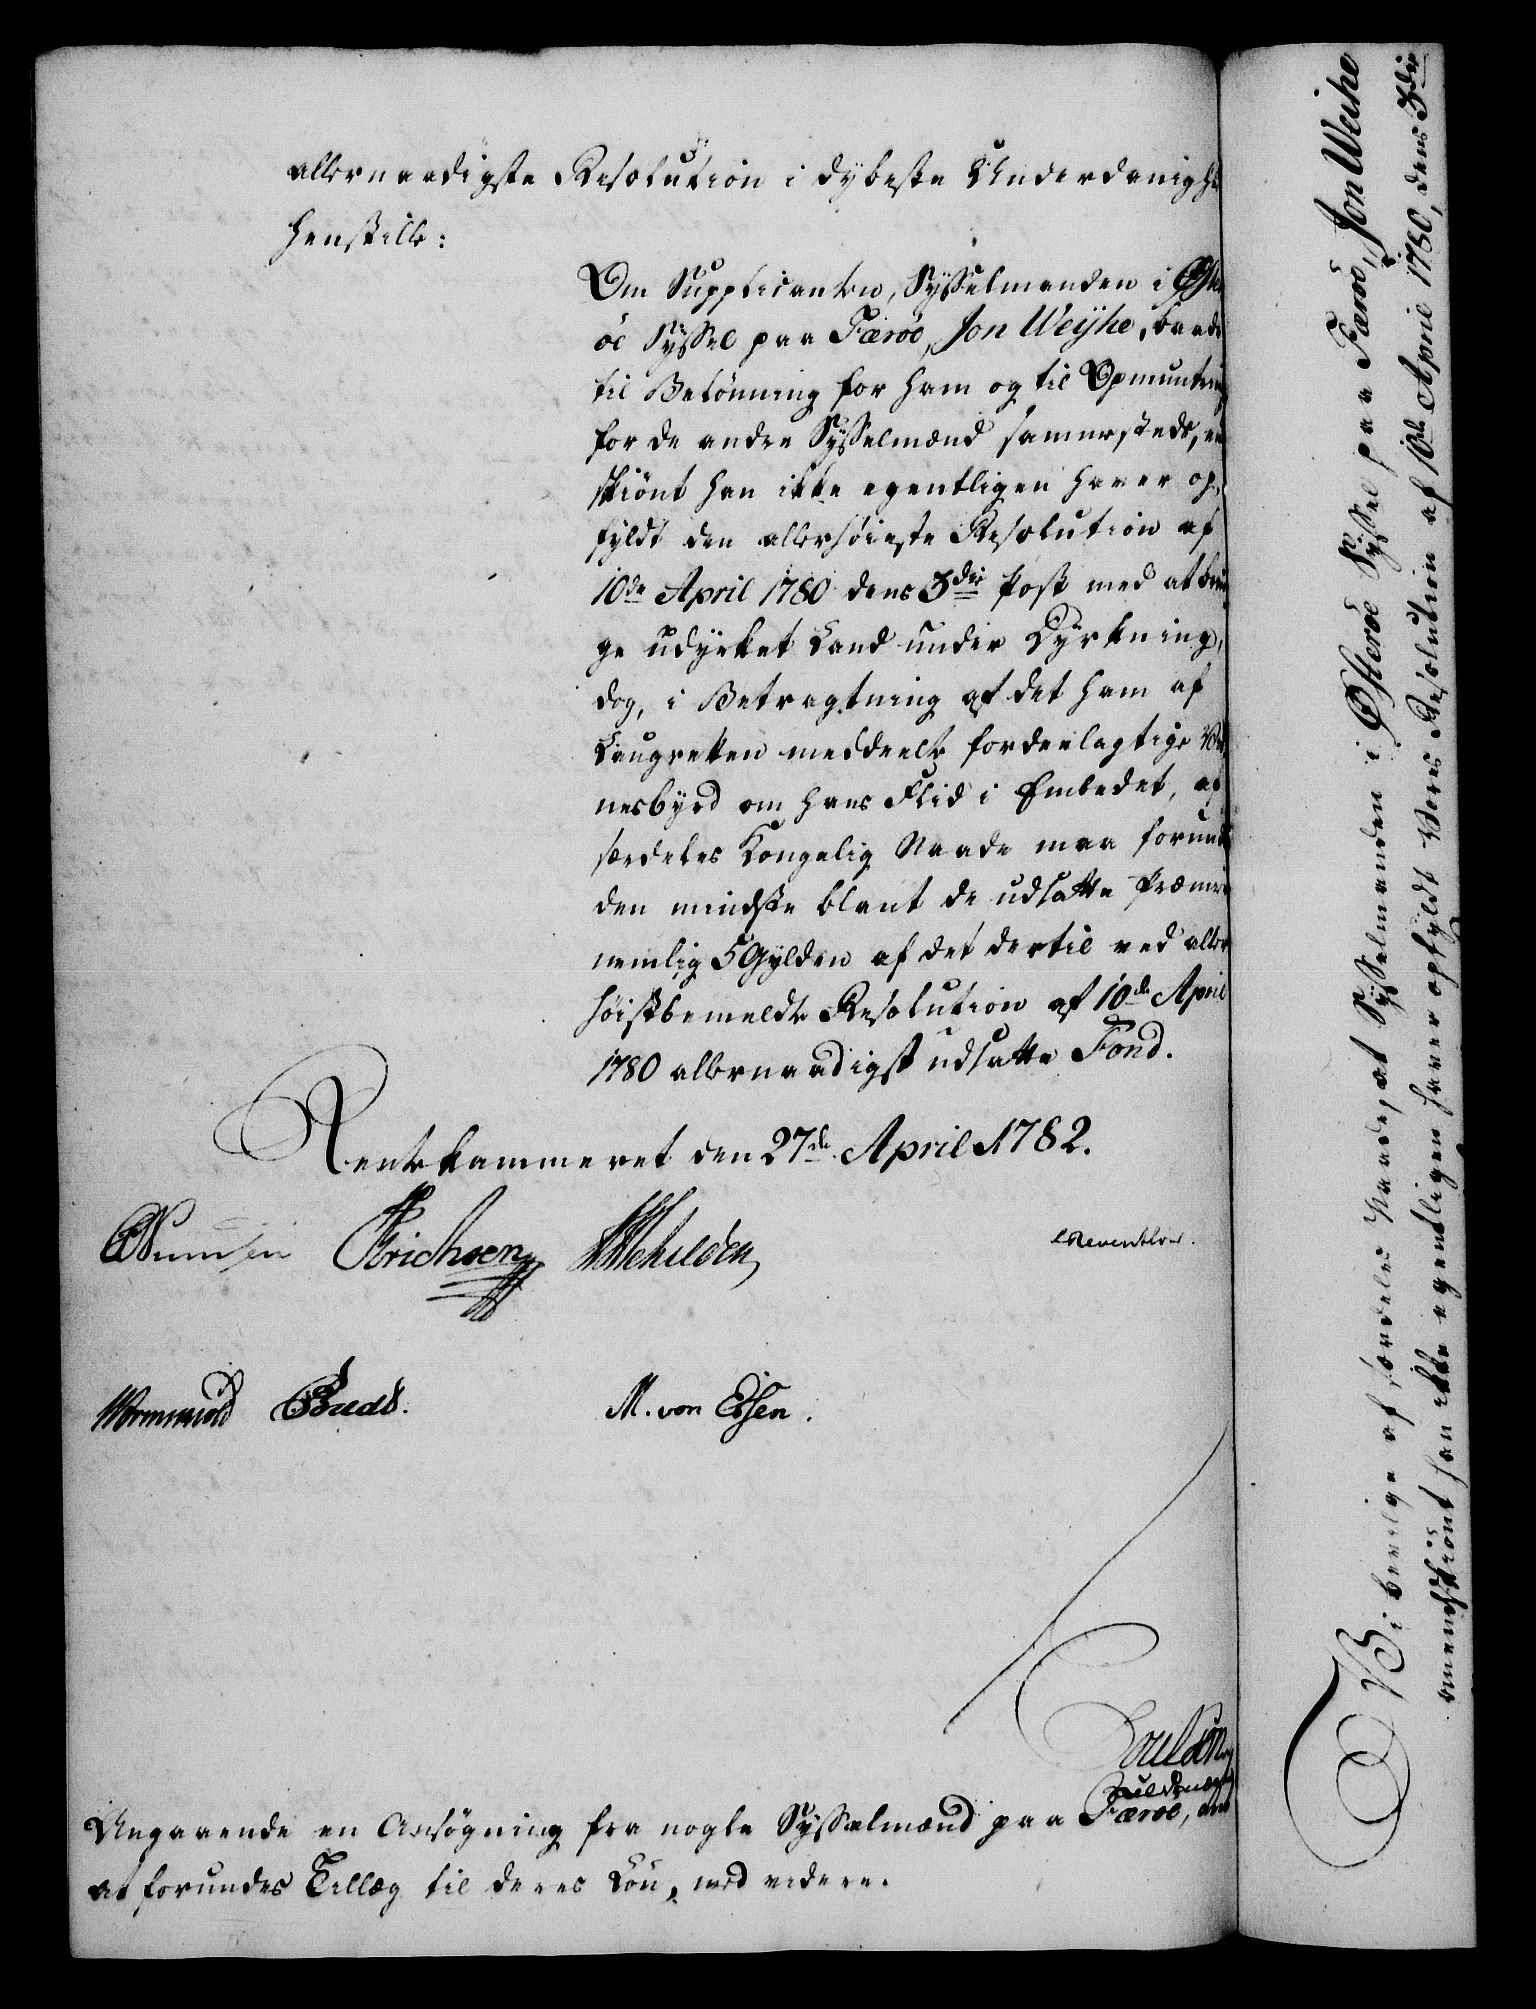 allernaadigste Resolution i dybeste Underdanighed
henstille:
Om Supplicanten, Sysselmanden i Øster
öe Syssel paa Færöe, Jon Weÿhe, baade
til Belönning for ham og til Opmuntring
for de andre Sysselmænd sammesteds, en
skiönt han ikke egentligen haver op,
fyldt den allerhöieste Resolution af
10de April 1780 dens 3die Post med at brin,
ge udyrket Land under Dyrkning,
dog, i Betragtning af det ham af
Laugretten meddeelte fordeelagtige Vid
nesbyrd om hans Flid i Embedet, af
særdeles Kongelig Naade maa forundes
den mindste blant de udsatte Præmier
nemlig 5 Gylden af det dertil ved aller
höistbemeldte Resolution af 10de April
1780 allernaadigst udsatte Fond.
Rentekammeret den 27de April 1782.
Erichsen
CReventlow.
Wormskiold
M. von Essen.
Fuldmægtig
Angaaende en Ansögning fra nogle Sysselmænd paa Færöe, om
at forundes Tillæg til deres Lön, med videre.
Vi bevilge af særdeles Naade, at Sysselmanden i Österöe Syssel paa Færöe, Jon Weihe
omendskiönt han ikke egentligen haver opfyldt Vores Resolution af 10de April 1780, dens 3die